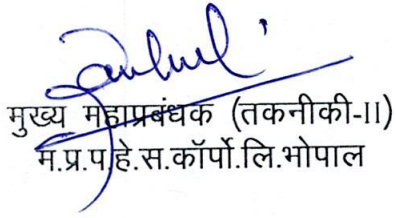 मुख्य महाप्रबंधक (तकनीकी-II)
म.प्र.प.हे.स.कॉर्पो.लि.भोपाल